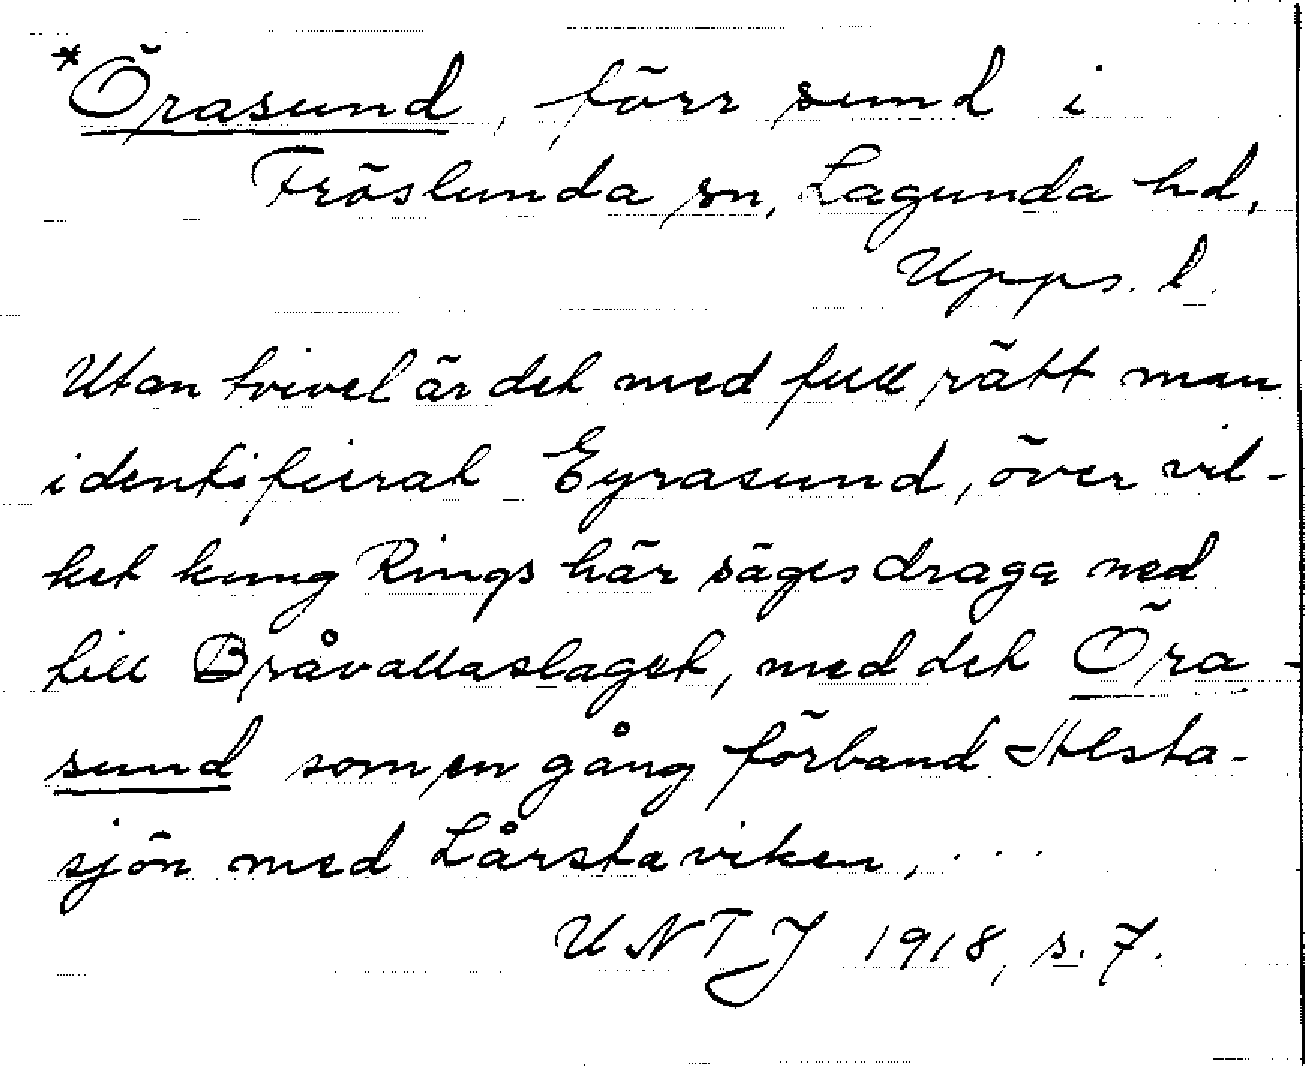 *Örasund, förr sund i
Fröslunda sn, Lagunda hd,
Upps. l.
Utan tvivel är det med full rätt man
identifierat Eyrasund, över vil-
ket kung Rings här säges draga ned
till Bråvallaslaget, med det Öra-
sund som en gång förband Alsta-
sjön med Lårstaviken, ...
UNTJ 1918, s. 7.